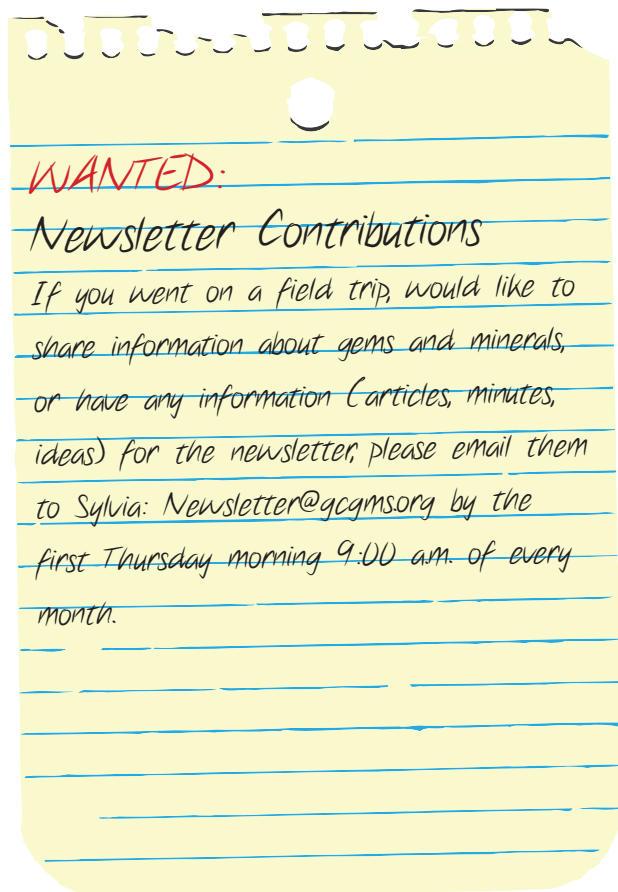 WANTED:
Newsletter Contributions
If you went on a field trip, would like to
share information about gems and minerals,
or have any information (articles, minutes,
ideas) for the newsletter, please email them
to Sylvia: Newsletter@gcgms.org by the
first Thursday morning 9:00 a.m. of every
month.